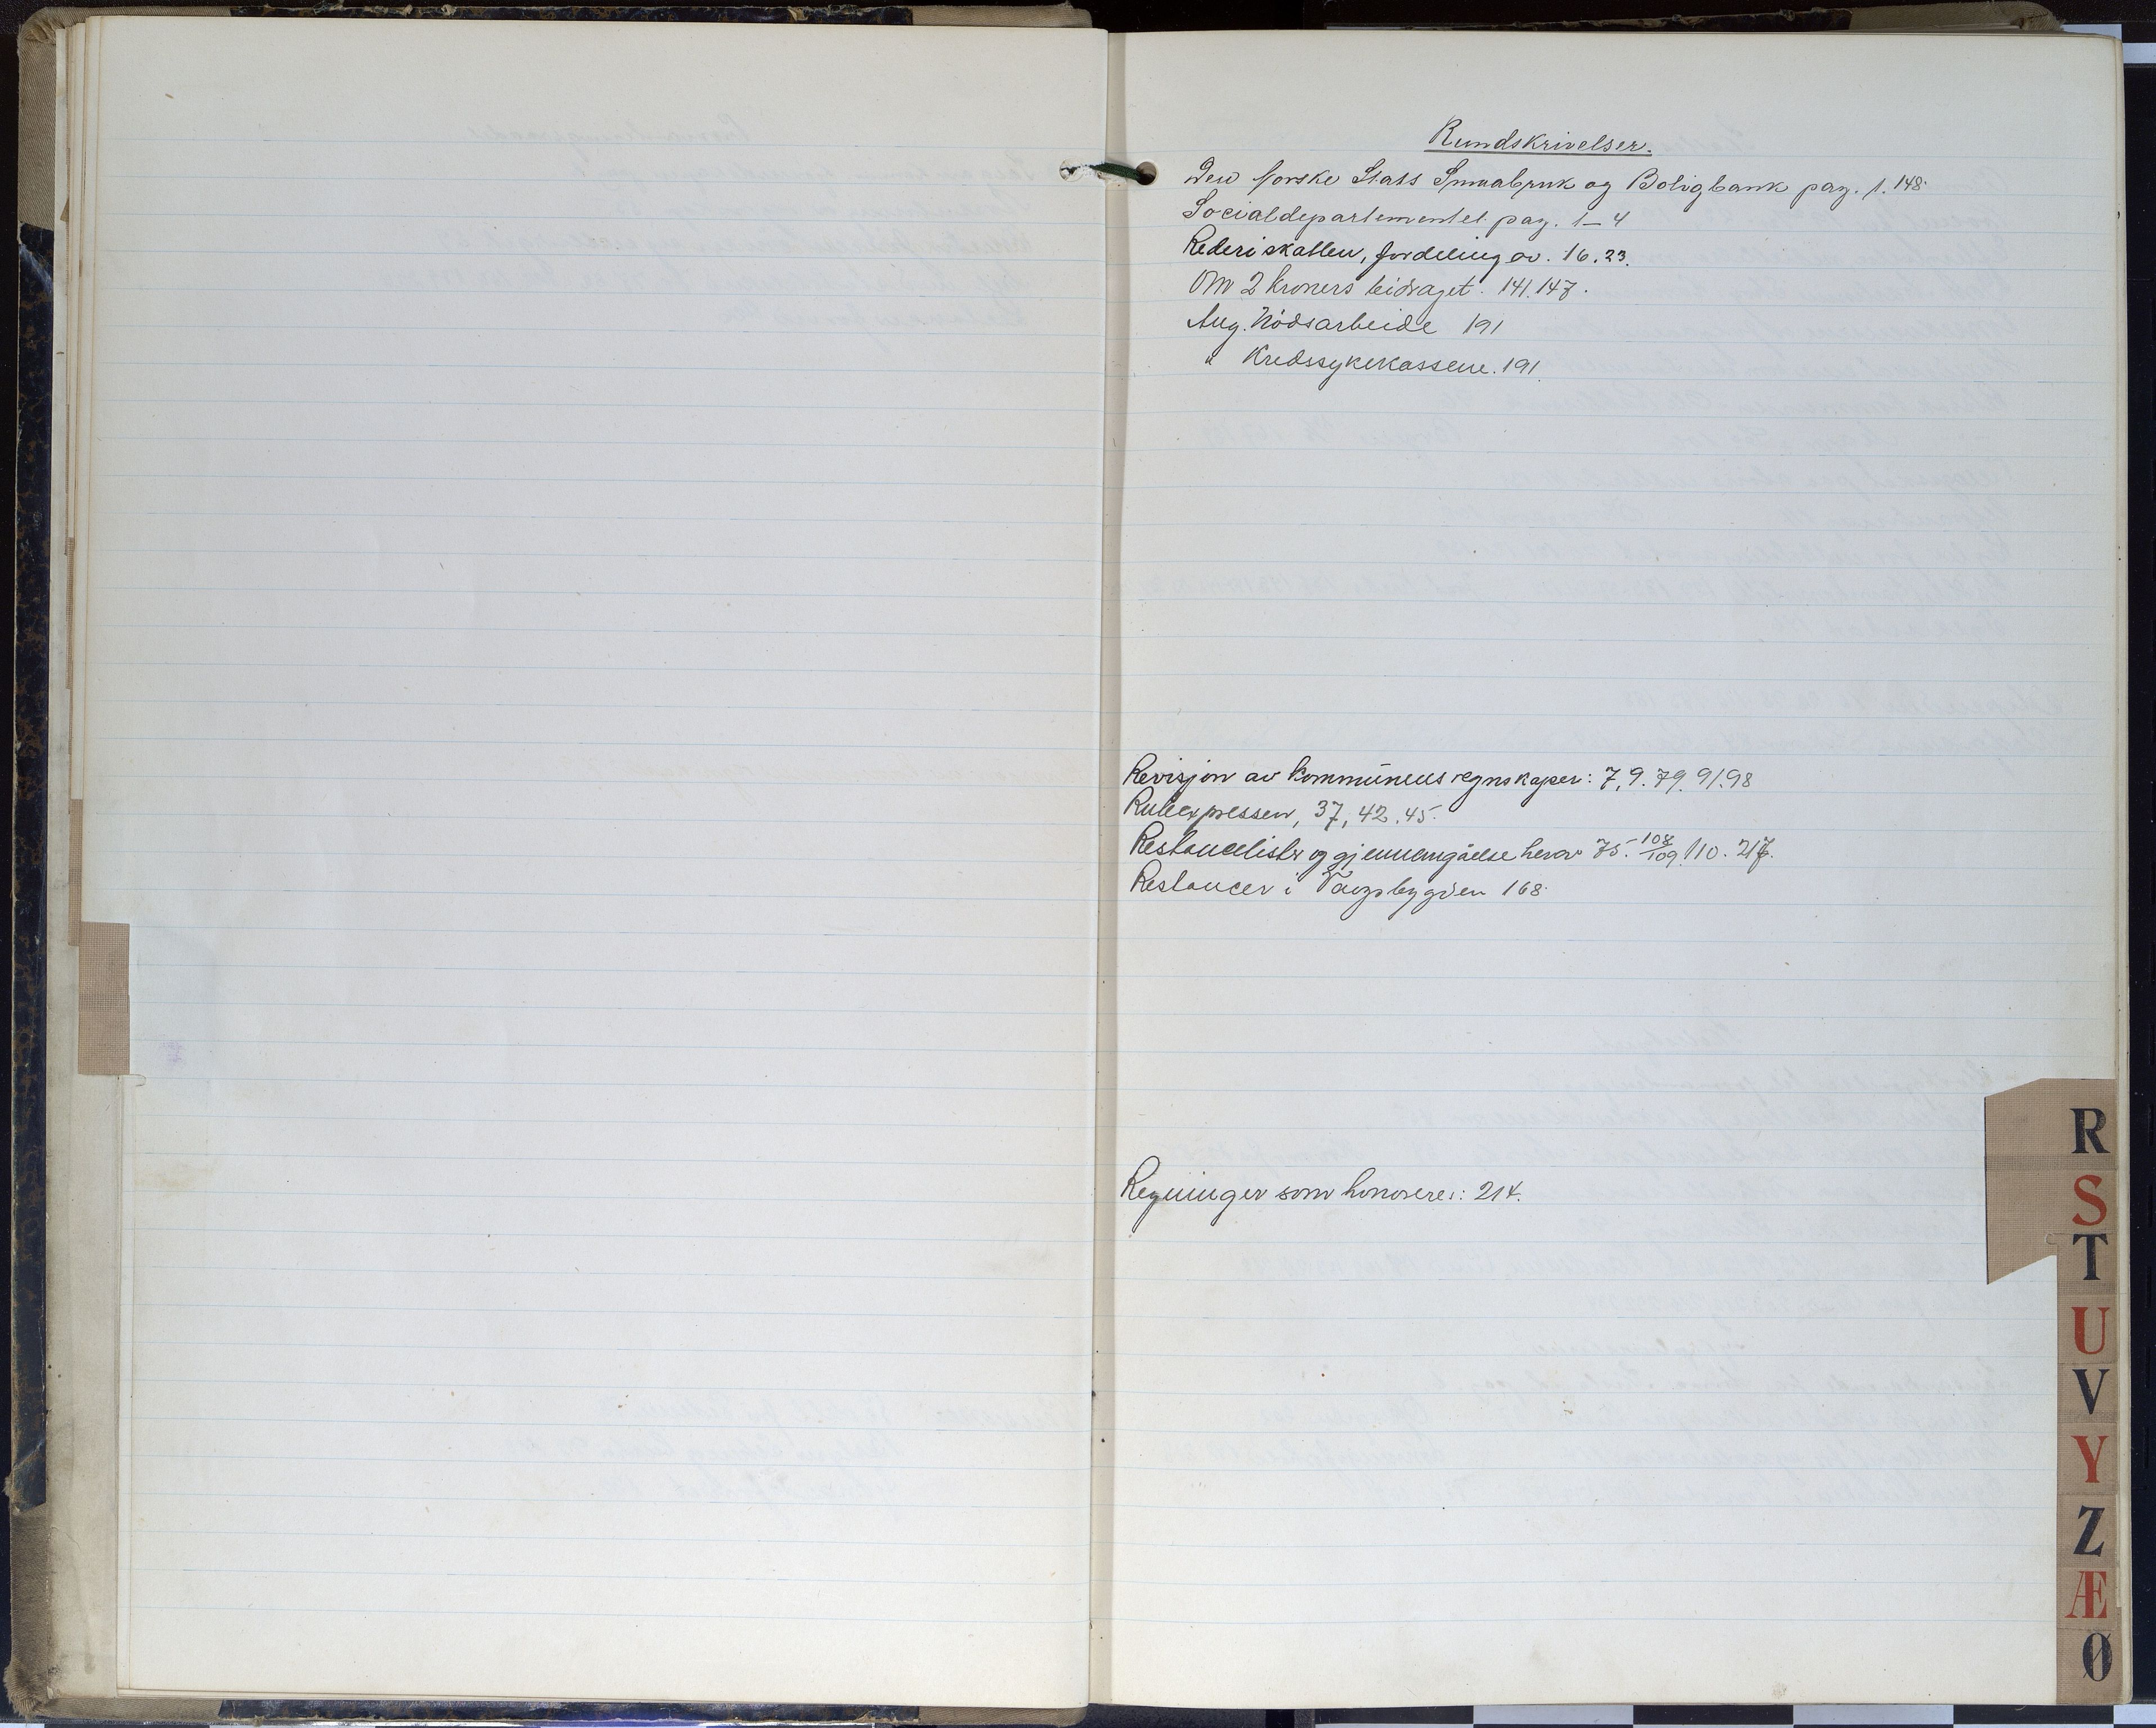 Rundskrivelser.
Den norske Stats Smaabruk og Boligbank pag. 1. 148.
Socialdepartementet pag. 1-4
Rederiskatten, fordeling av. 16. 23.
Om 2 Kroners bidraget. 141. 147.
Ang. Nödsarbeide 191
" Kredssykekassene. 191
Revisjon av Kommunens regnskaper: 7, 9. 79. 91. 98
Ruteexpressen, 37, 42, 45.
Restancelister og gjennemgåelse herav 75. 108/109 110. 217.
Restancer i 168.
Regninger som honoreres: 214.
R
S
T
U
V
Y
Z
Æ
Ø